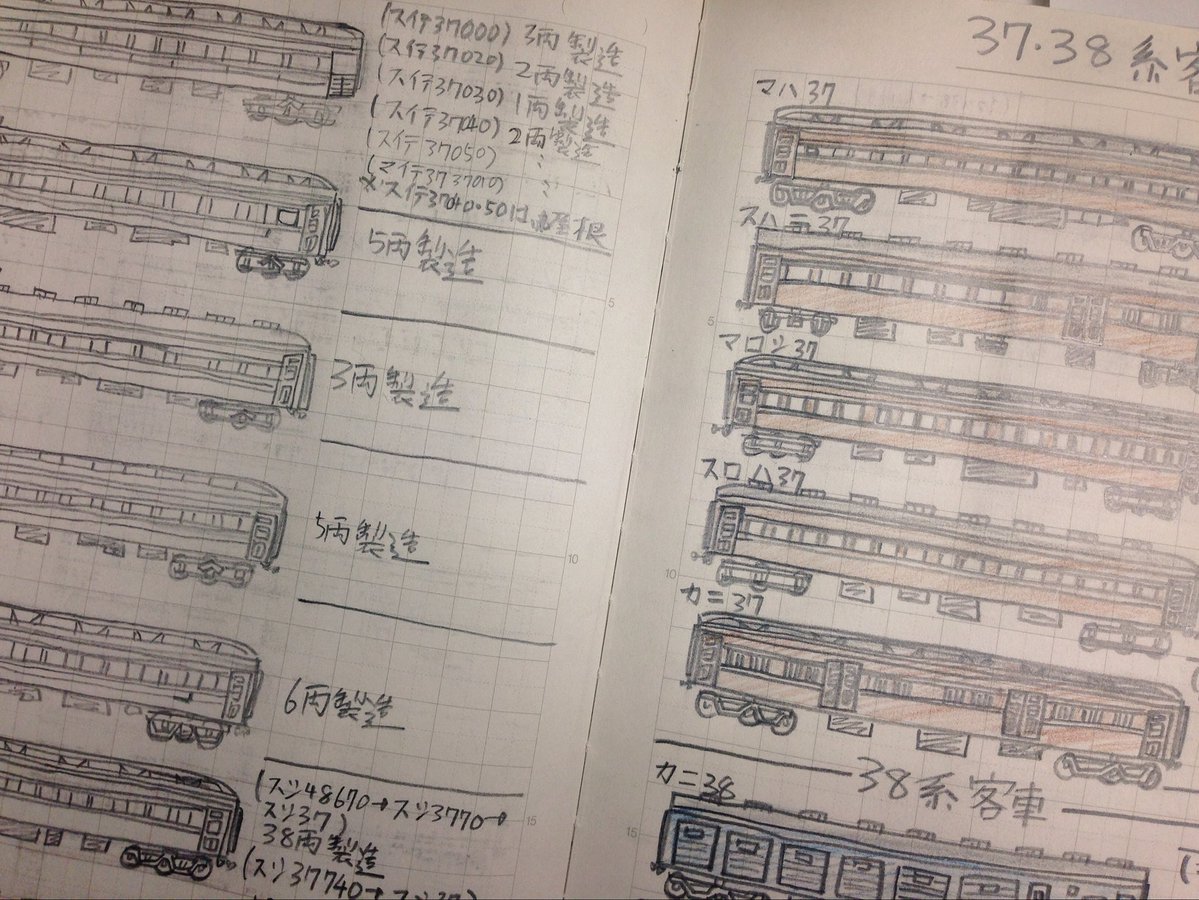 (スイテ37000) 3両製造
(スイテ37020) 2両製造
(スイテ37030) 1両製造
(スイテ37040) 2両製造
(スイテ37050) 〃
(マイテ37300) 〃
※スイテ37040・50は 屋根
5両製造
3両製造
5両製造
6両製造
(スシ48670→スシ3770→
スシ37)
38両製造
(スシ37740→スシ37)
5
10
15
37・38系客
マハ37
スハテ37
マロシ37
スロハ37
カニ37
38系客車
カニ38
5
10
15